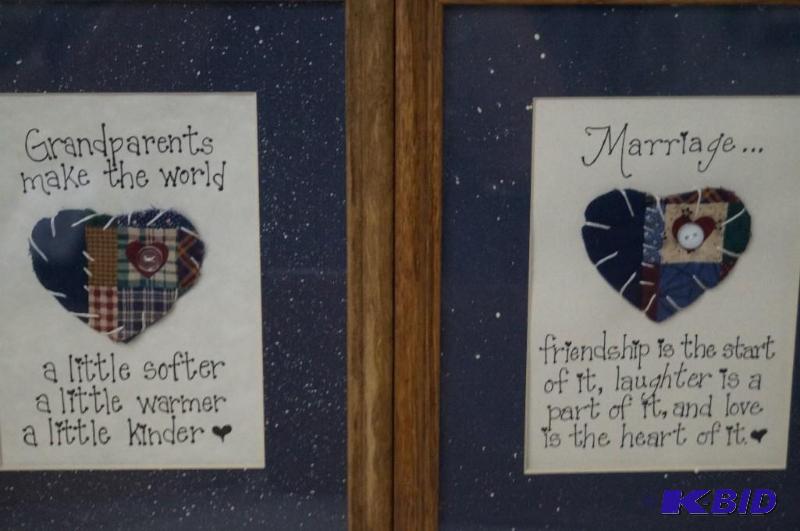 Grandparents
make the world
a little softer
a little warmer
a little kinder
Marriage...
friendship is the start
of it, laughter is a
part of it, and love
is the heart of it.
K-BID